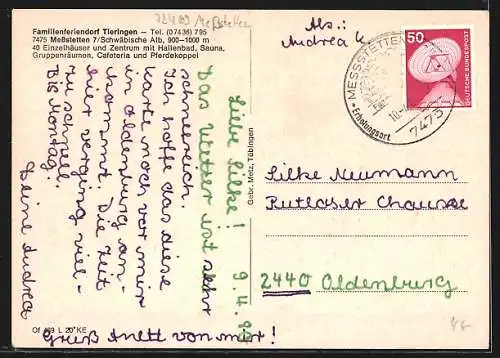 72469 Meßstetten
Familienferiendorf Tieringen — Tel. (07436) 795
7475 Meßstetten 7/Schwäbische Alb, 900–1000 m
40 Einzelhäuser und Zentrum mit Hallenbad, Sauna,
Gruppenräumen, Cafeteria und Pferdekoppel
Abs.:
Andrea
MESSSTETTEN
Erholungsort
7475
50
DEUTSCHE BUNDESPOST
Liebe Silke! 9.4.
Das Wetter ist sehr
schneereich.
Ich hoffe das diese
Karte noch vor mir
in Oldenburg an-
kommt. Die Zeit
hier verging viel
zu schnell.
Bis Montag!
Deine Andrea
Gruß Anett von mir!
Gebr. Metz, Tübingen
Silke Neumann
Putloser Chausse
2440 Oldenburg